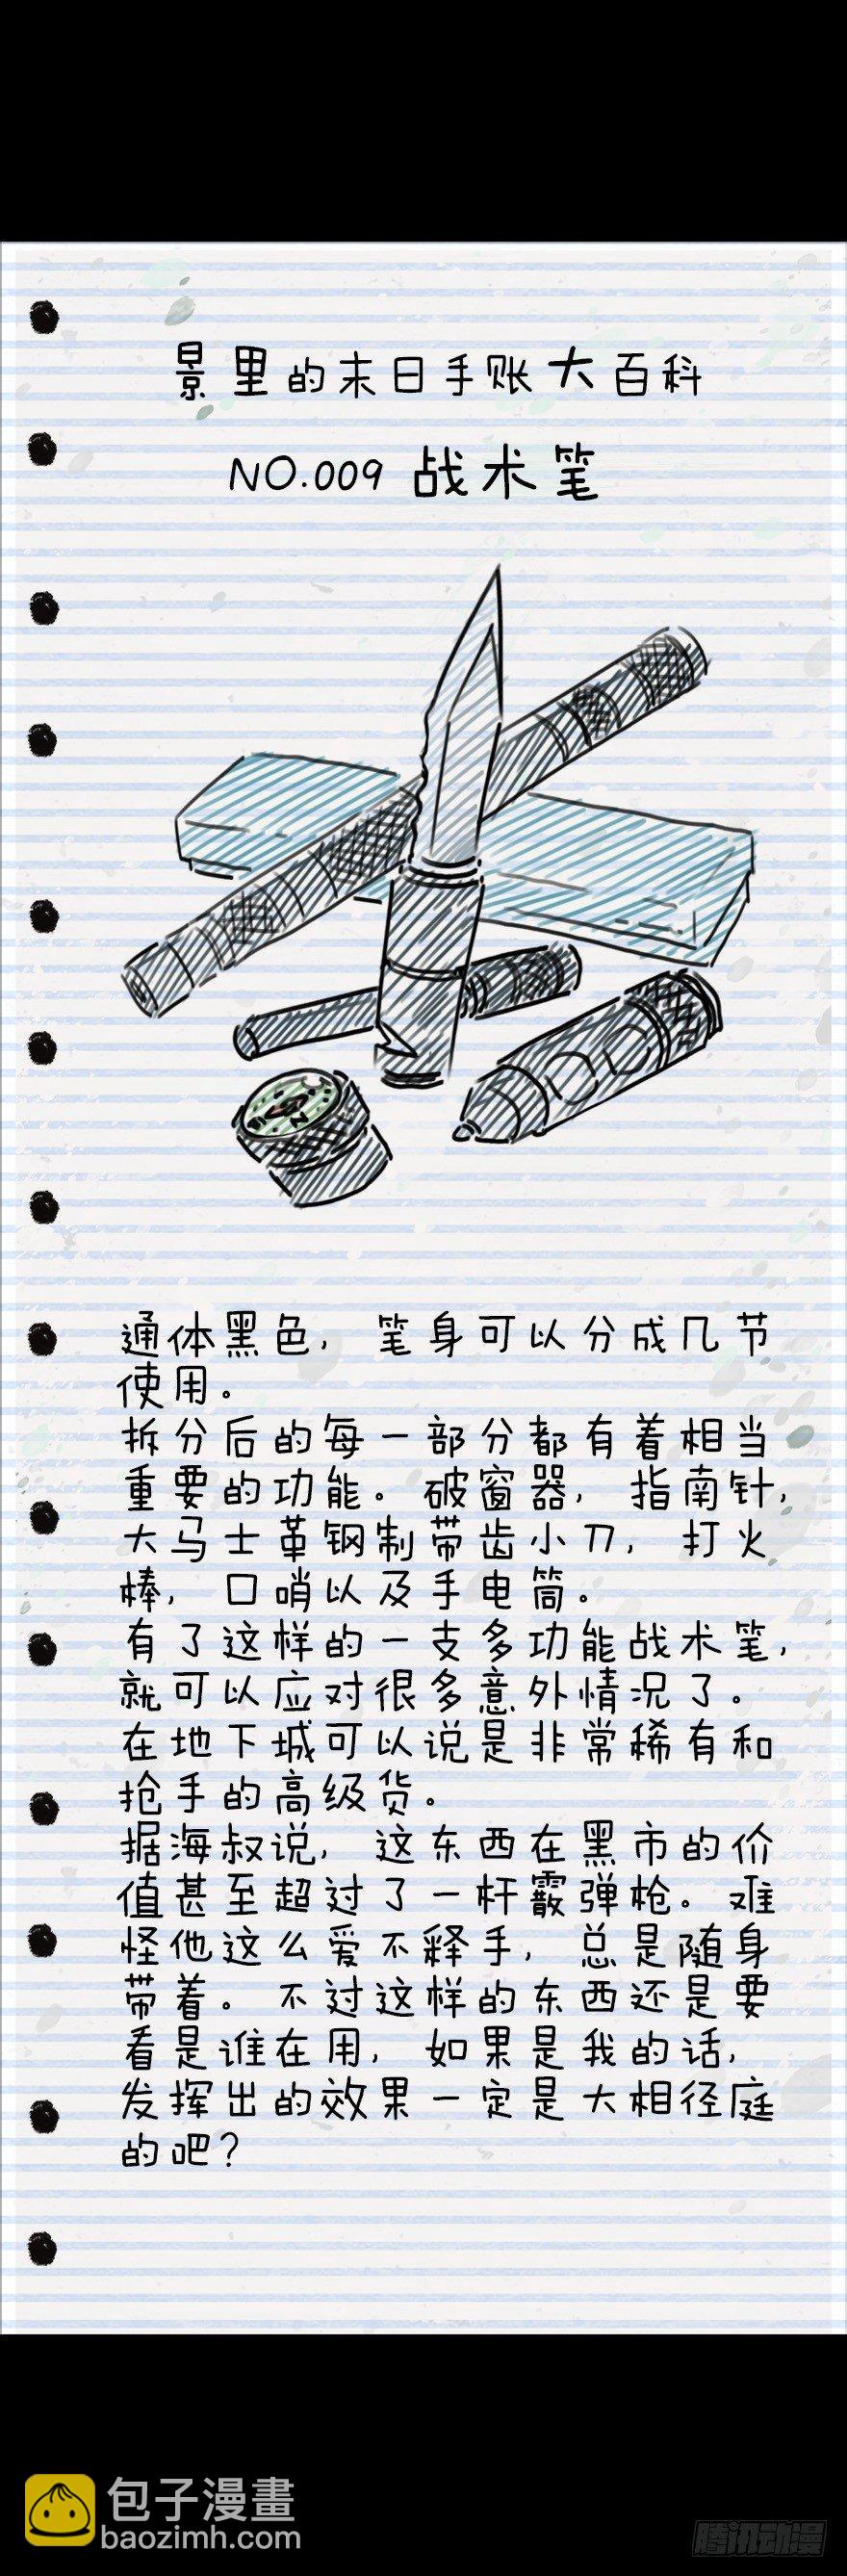 景里的末日手账大百科
NO.009 战术笔
通体黑色，笔身可以分成几节
使用。
拆分后的每一部分都有着相当
重要的功能。破窗器，指南针，
大马士革钢制带齿小刀，打火
棒，口哨以及手电筒。
有了这样的一支多功能战术笔，
就可以应对很多意外情况了。
在地下城可以说是非常稀有和
抢手的高级货。
据海叔说，这东西在黑市的价
值甚至超过了一杆霰弹枪。难
怪他这么爱不释手，总是随身
带着。不过这样的东西还是要
看是谁在用，如果是我的话，
发挥出的效果一定是大相径庭
的吧？
包子漫畫
baozimh.com
腾讯动漫